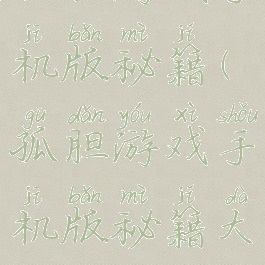 jī bǎn mì jí
机版秘籍(
gū dǎn yóu xì shǒu
孤胆游戏手
jī bǎn mì jí dà
机版秘籍大